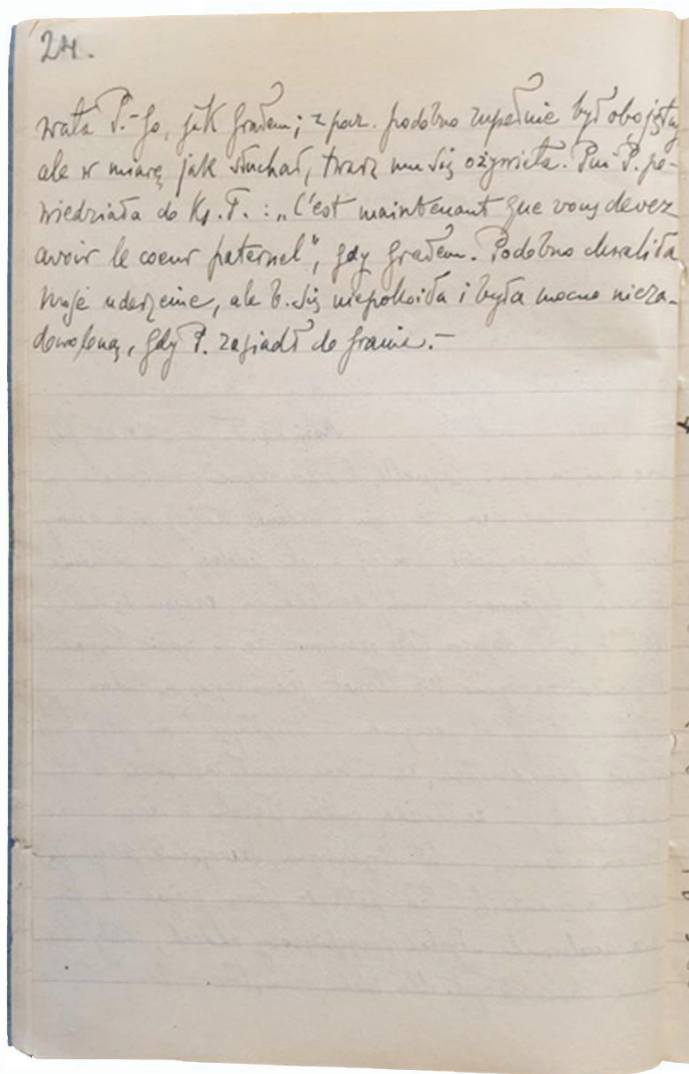 24.
wała P.-go, jak grałem; z pocz. podobno zupełnie był obojętny
ale w miarę jak słuchał, twarz mu się ożywiła. Pni P. po-
wiedziała do Ks. T. : „C'est maintenant que vous devez
avoir le coeur paternel", gdy grałem. Podobno chwaliła
moje uderzenie, ale b. się niepokoiła i była mocno nieza-
dowoloną, gdy P. zasiadł do grania.–